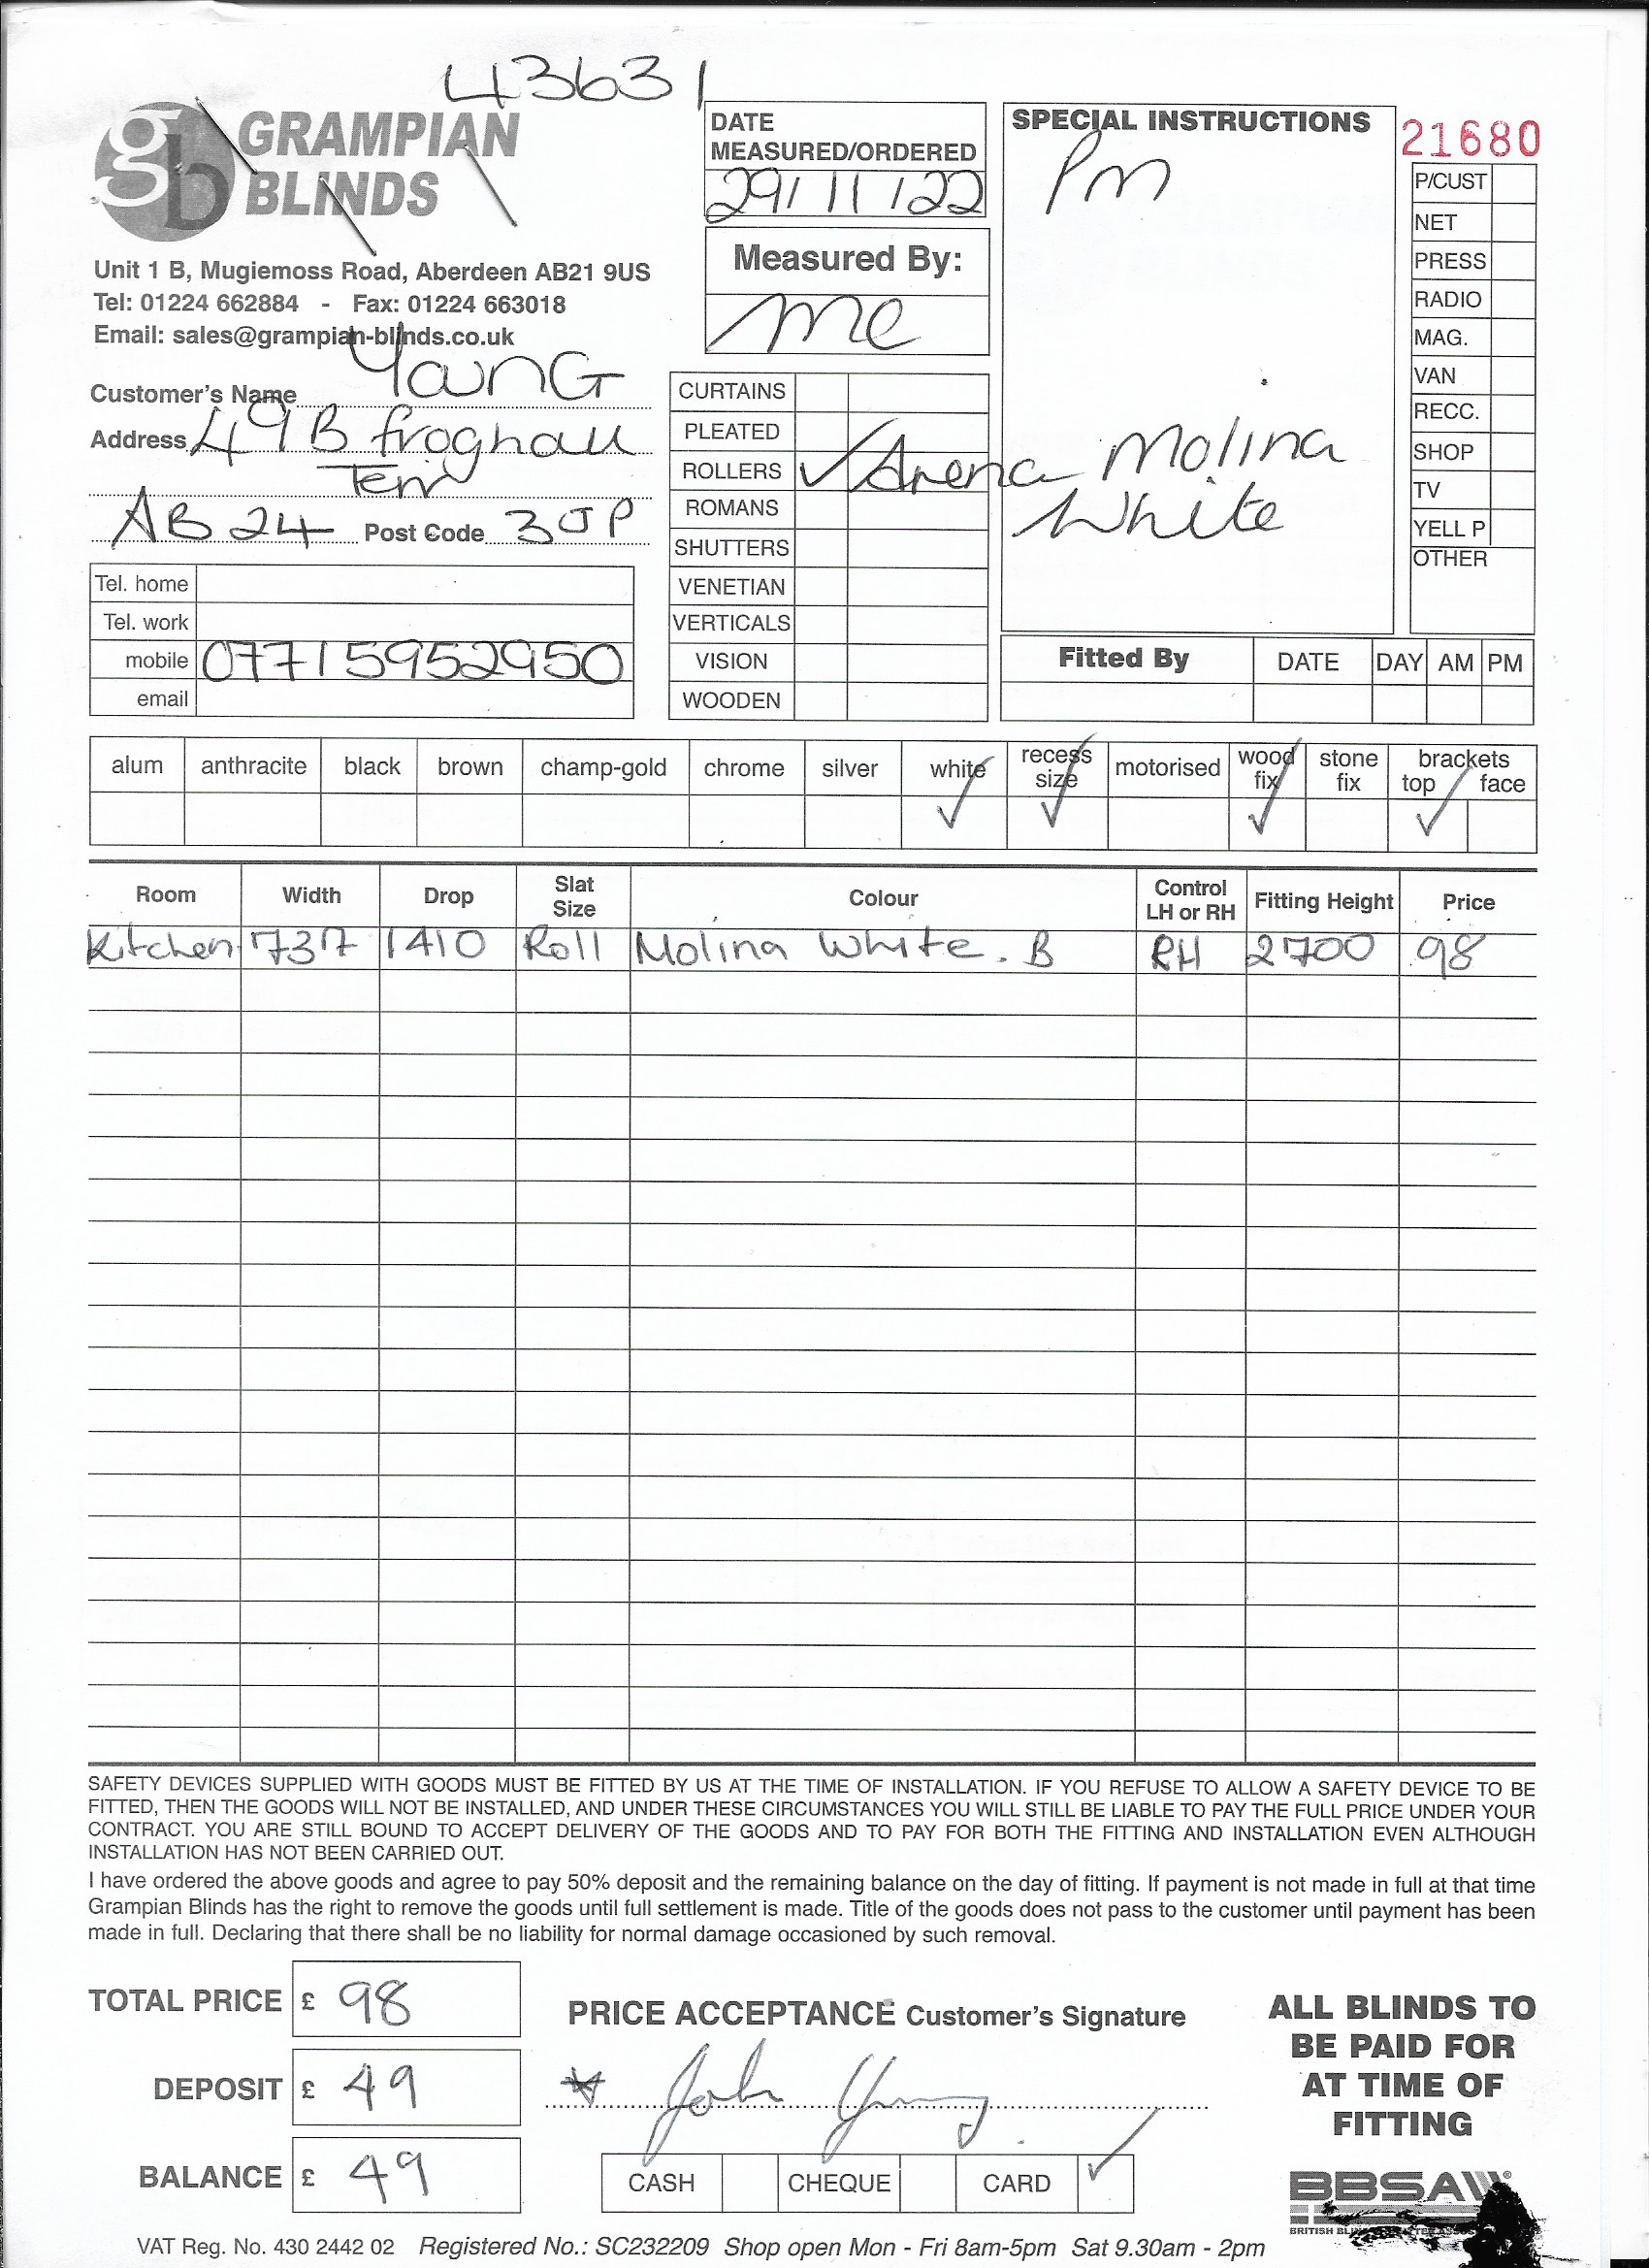 43631
gb GRAMPIAN
BLINDS
Unit 1 B, Mugiemoss Road, Aberdeen AB21 9US
Tel: 01224 662884 - Fax: 01224 663018
Email: sales@grampian-blinds.co.uk
Customer's Name Young
Address 49B froghall
Terr
AB24 Post Code 3JP
Tel. home
Tel. work
mobile 07715952950
email
DATE
MEASURED/ORDERED
29/11/22
Measured By:
me
CURTAINS
PLEATED
ROLLERS ✓ Arena Molina
White
ROMANS
SHUTTERS
VENETIAN
VERTICALS
VISION
WOODEN
SPECIAL INSTRUCTIONS
Pm
21680
P/CUST
NET
PRESS
RADIO
MAG.
VAN
RECC.
SHOP
TV
YELL P
OTHER
Fitted By DATE DAY AM PM
alum anthracite black brown champ-gold chrome silver white ✓ recess size ✓ motorised wood fix ✓ stone fix brackets top ✓ face
Room Width Drop Slat Size Colour Control LH or RH Fitting Height Price
Kitchen 737 1410 Roll Molina White. B RH 2700 98
SAFETY DEVICES SUPPLIED WITH GOODS MUST BE FITTED BY US AT THE TIME OF INSTALLATION. IF YOU REFUSE TO ALLOW A SAFETY DEVICE TO BE
FITTED, THEN THE GOODS WILL NOT BE INSTALLED, AND UNDER THESE CIRCUMSTANCES YOU WILL STILL BE LIABLE TO PAY THE FULL PRICE UNDER YOUR
CONTRACT. YOU ARE STILL BOUND TO ACCEPT DELIVERY OF THE GOODS AND TO PAY FOR BOTH THE FITTING AND INSTALLATION EVEN ALTHOUGH
INSTALLATION HAS NOT BEEN CARRIED OUT.
I have ordered the above goods and agree to pay 50% deposit and the remaining balance on the day of fitting. If payment is not made in full at that time
Grampian Blinds has the right to remove the goods until full settlement is made. Title of the goods does not pass to the customer until payment has been
made in full. Declaring that there shall be no liability for normal damage occasioned by such removal.
TOTAL PRICE £ 98
DEPOSIT £ 49
BALANCE £ 49
PRICE ACCEPTANCE Customer's Signature
John Young
CASH CHEQUE CARD ✓
ALL BLINDS TO
BE PAID FOR
AT TIME OF
FITTING
BBSA
BRITISH
VAT Reg. No. 430 2442 02 Registered No.: SC232209 Shop open Mon - Fri 8am-5pm Sat 9.30am - 2pm